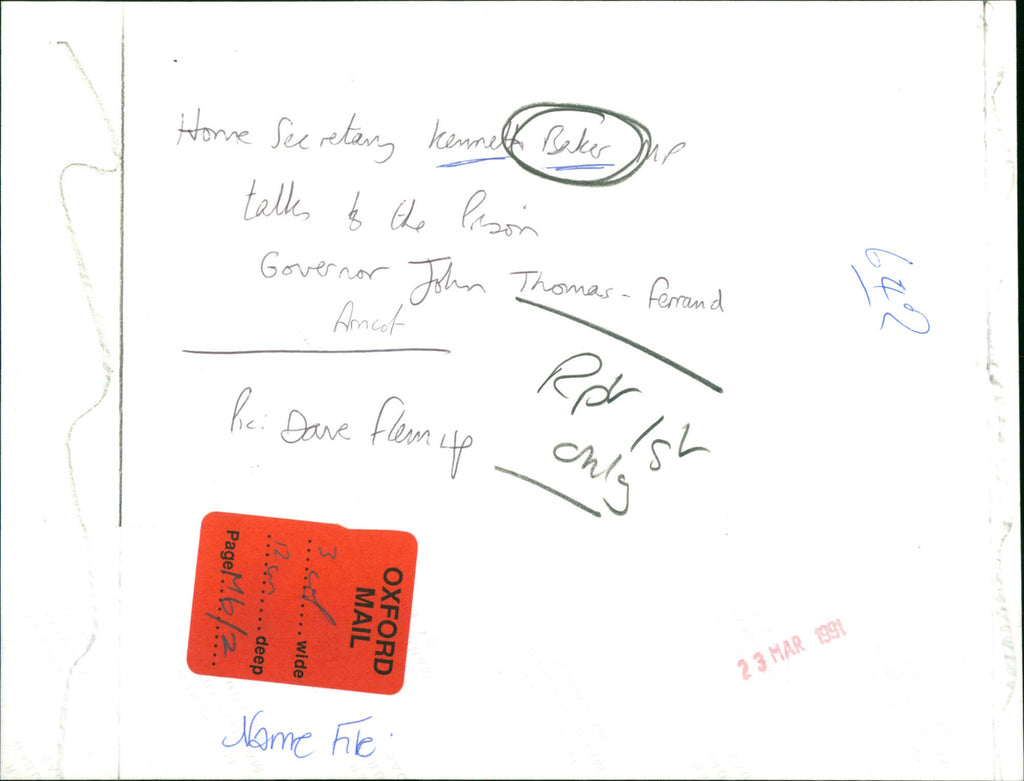 Home Secretary Kenneth Baker MP
talks to the Prison
Governor John Thomas-Ferrand
Pic: Dave Fleming
Rptr
1st
only
642
OXFORD
MAIL
3 col wide
12 cm deep
Page M6/2
23 MAR 1991
Name File